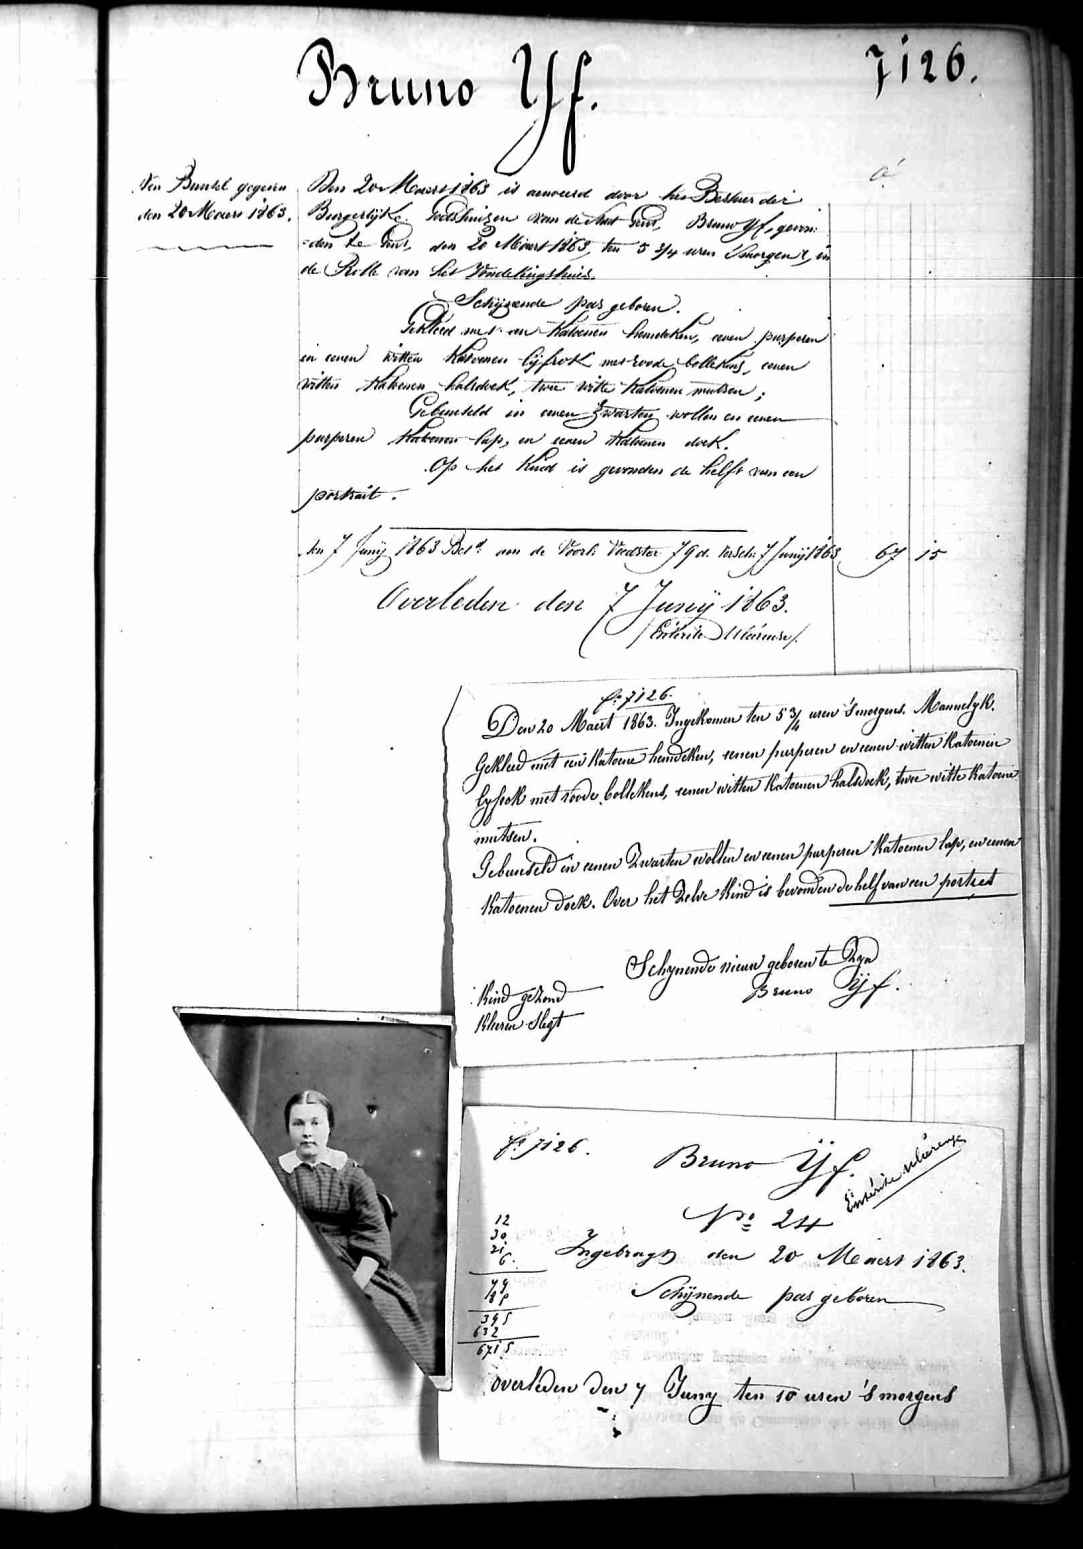 Bruno Yf.
7126.
Den Bundel gegeven
den 20 Maers 1863.
Den 20 Maers 1863 is aenveerd door het Bestuer der
Burgerlyke Godshuizen van de stad Gend, Bruno Yf, gevon:
:den te Gend, den 20 Maert 1863, ten 5 3/4 uren 's morgens, in
de Rolle van het Vondelingshuis.
Schijnende pas geboren.
Gekleed met een katoenen hemdeken, eenen purperen
en eenen witten katoenen lijfrok met roode bollekens, eenen
witten katoenen halsdoek, twee witte katoenen mutsen;
Gebunseld in eenen zwarten wollen en eenen
purperen katoenen lap, en eenen katoenen doek.
Op het kind is gevonden de helft van een
portrait.
den 7 Junij 1863 Betd aen de Voorl. Voedster 79 d. tersch. 7 Junij 1863 67 15
Overleden den 7 Junij 1863.
f° 7126.
Den 20 Maert 1863. Ingekomen ten 5 3/4 uren 's morgens. Mannelyk.
Gekleed met een katoene hemdeken, eenen purperen en eenen witten katoenen
lyfrok met roode bollekens, eenen witten katoenen halsdoek, twee witte katoene
mutsen.
Gebunseld in eenen zwarten wollen en eenen purperen katoenen lap, en eenen
katoenen doek. Over het zelve kind is bevonden de helf van een portret
Schynende nieuw geboren te zyn
Bruno Yf.
kind gezond
kleeren slegt
f° 7126.
Bruno Yf.
Entérite
N° 24
12
30
31
6.
79
85
395
632
6715
Ingebragt den 20 Maert 1863.
Schijnende pas geboren
overleden den 7 Juny ten 10 uren 's morgens